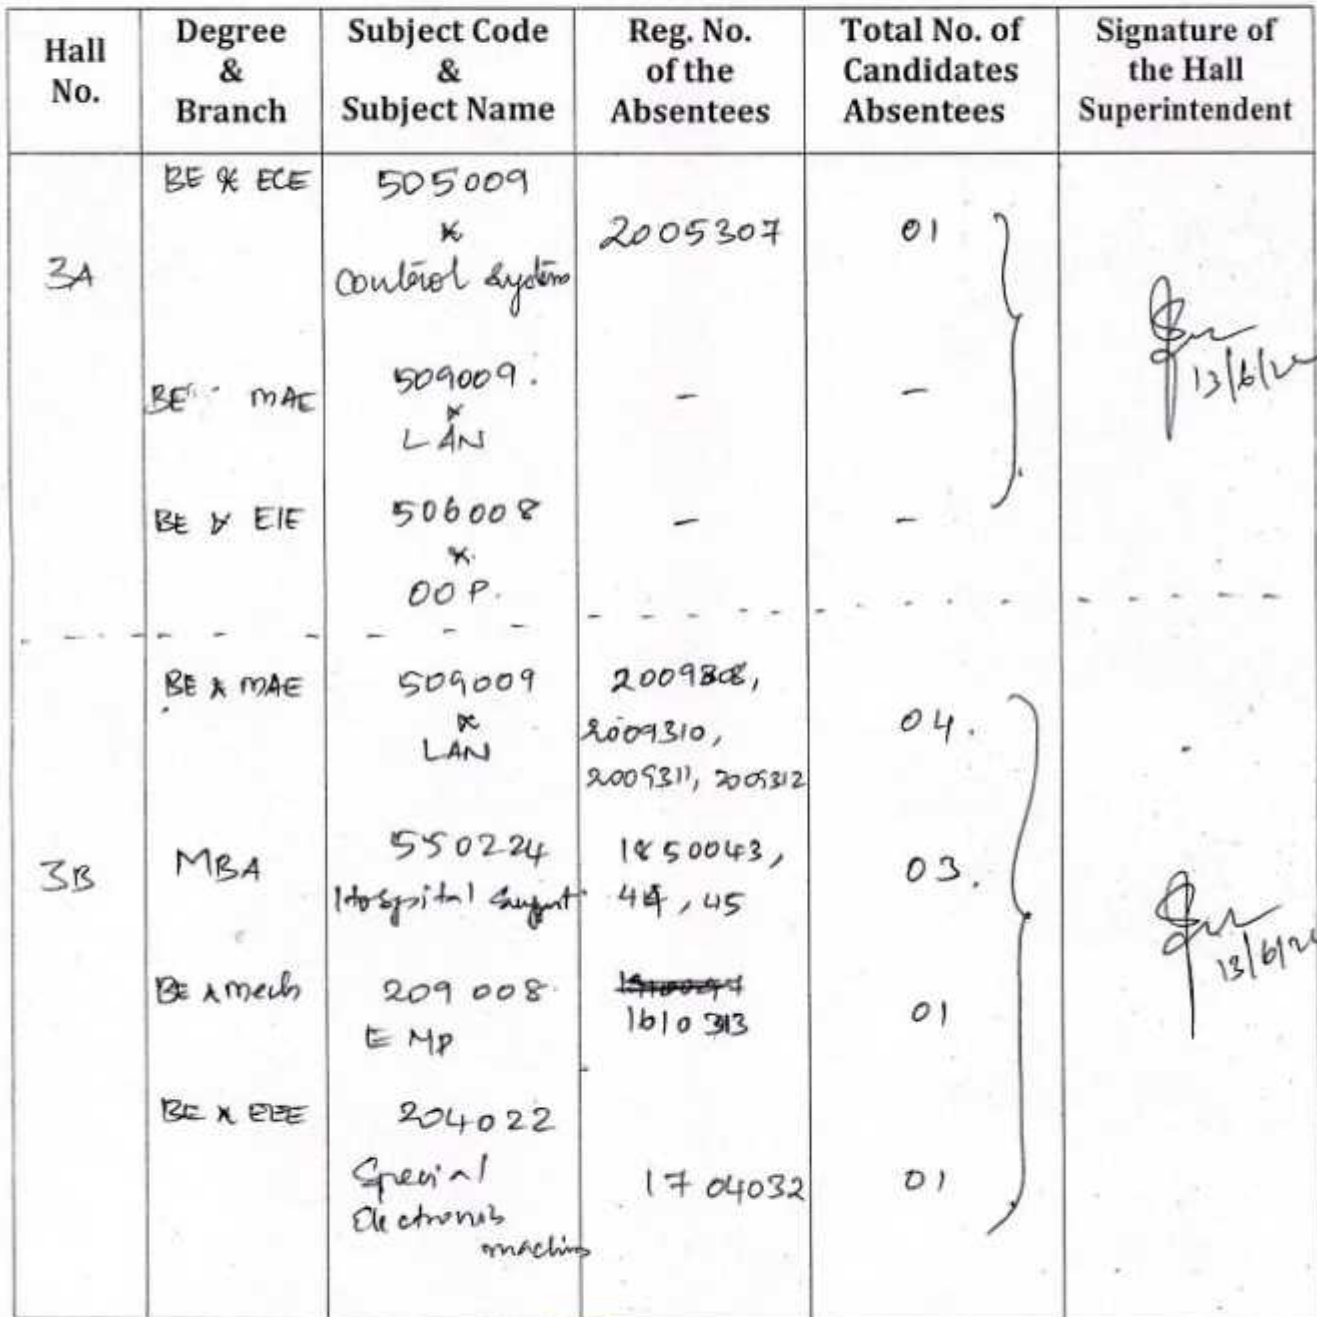 Hall No.
Degree & Branch
Subject Code & Subject Name
Reg. No. of the Absentees
Total No. of Candidates Absentees
Signature of the Hall Superintendent
3A
BE & ECE
505009
&
Control System
2005307
01
13/6/22
BE MAE
509009.
&
LAN
-
-
BE & EIE
506008
&
OOP.
-
-
BE & MAE
509009
&
LAN
2009308,
2009310,
2009311, 2009312
04.
3B
MBA
550224
Hospital
1850043,
44, 45
03.
13/6/22
BE & Mech
209008
EMP
1610313
01
BE & EEE
204022
Special
Electronis
machins
1704032
01